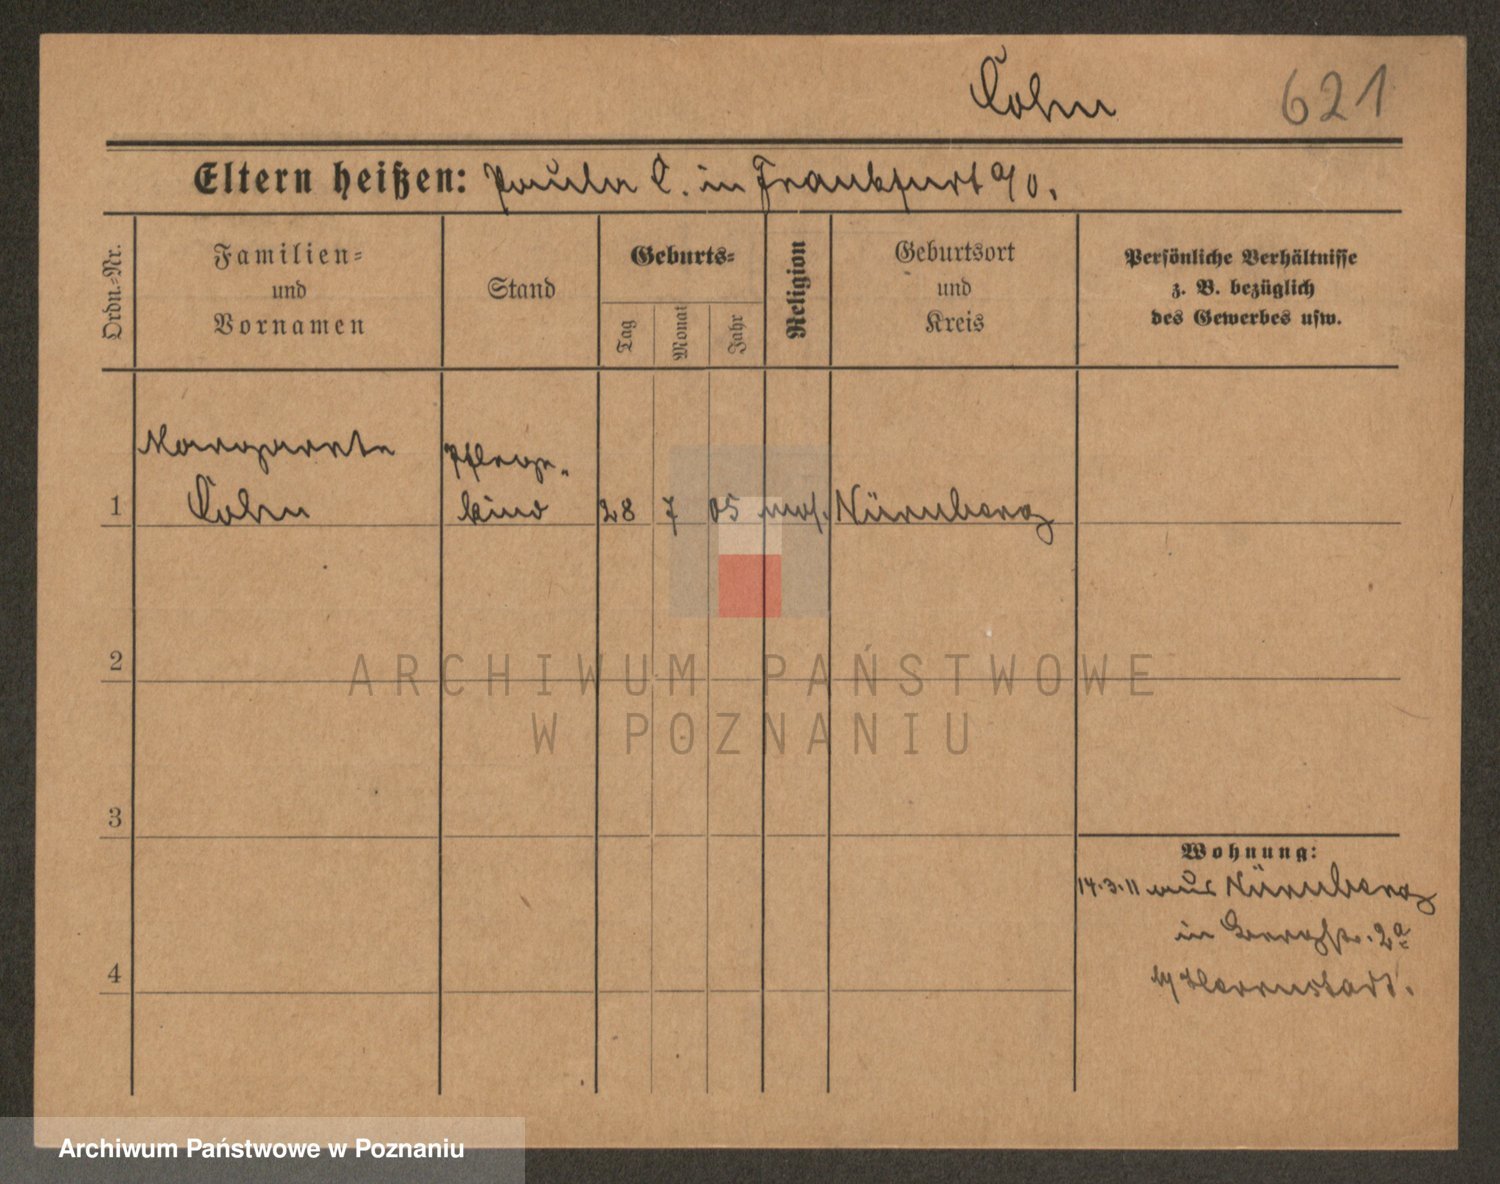 Cohn 621
Eltern heißen: Paula C. in Frankfurt a/O.
Ordn.-Nr.
Familien-
und
Vornamen
Stand
Geburts-
Tag
Monat
Jahr
Religion
Geburtsort
und
Kreis
Persönliche Verhältnisse
z. B. bezüglich
des Gewerbes usw.
Margarete Pflege-
1 Cohn kind 28 7 05 mos. Nürnberg
2
ARCHIWUM PAŃSTWOWE
W POZNANIU
3
Wohnung:
14.3.11 aus Nürnberg
in Bergstr. 2a
b/ Herrnstadt.
4
Archiwum Państwowe w Poznaniu